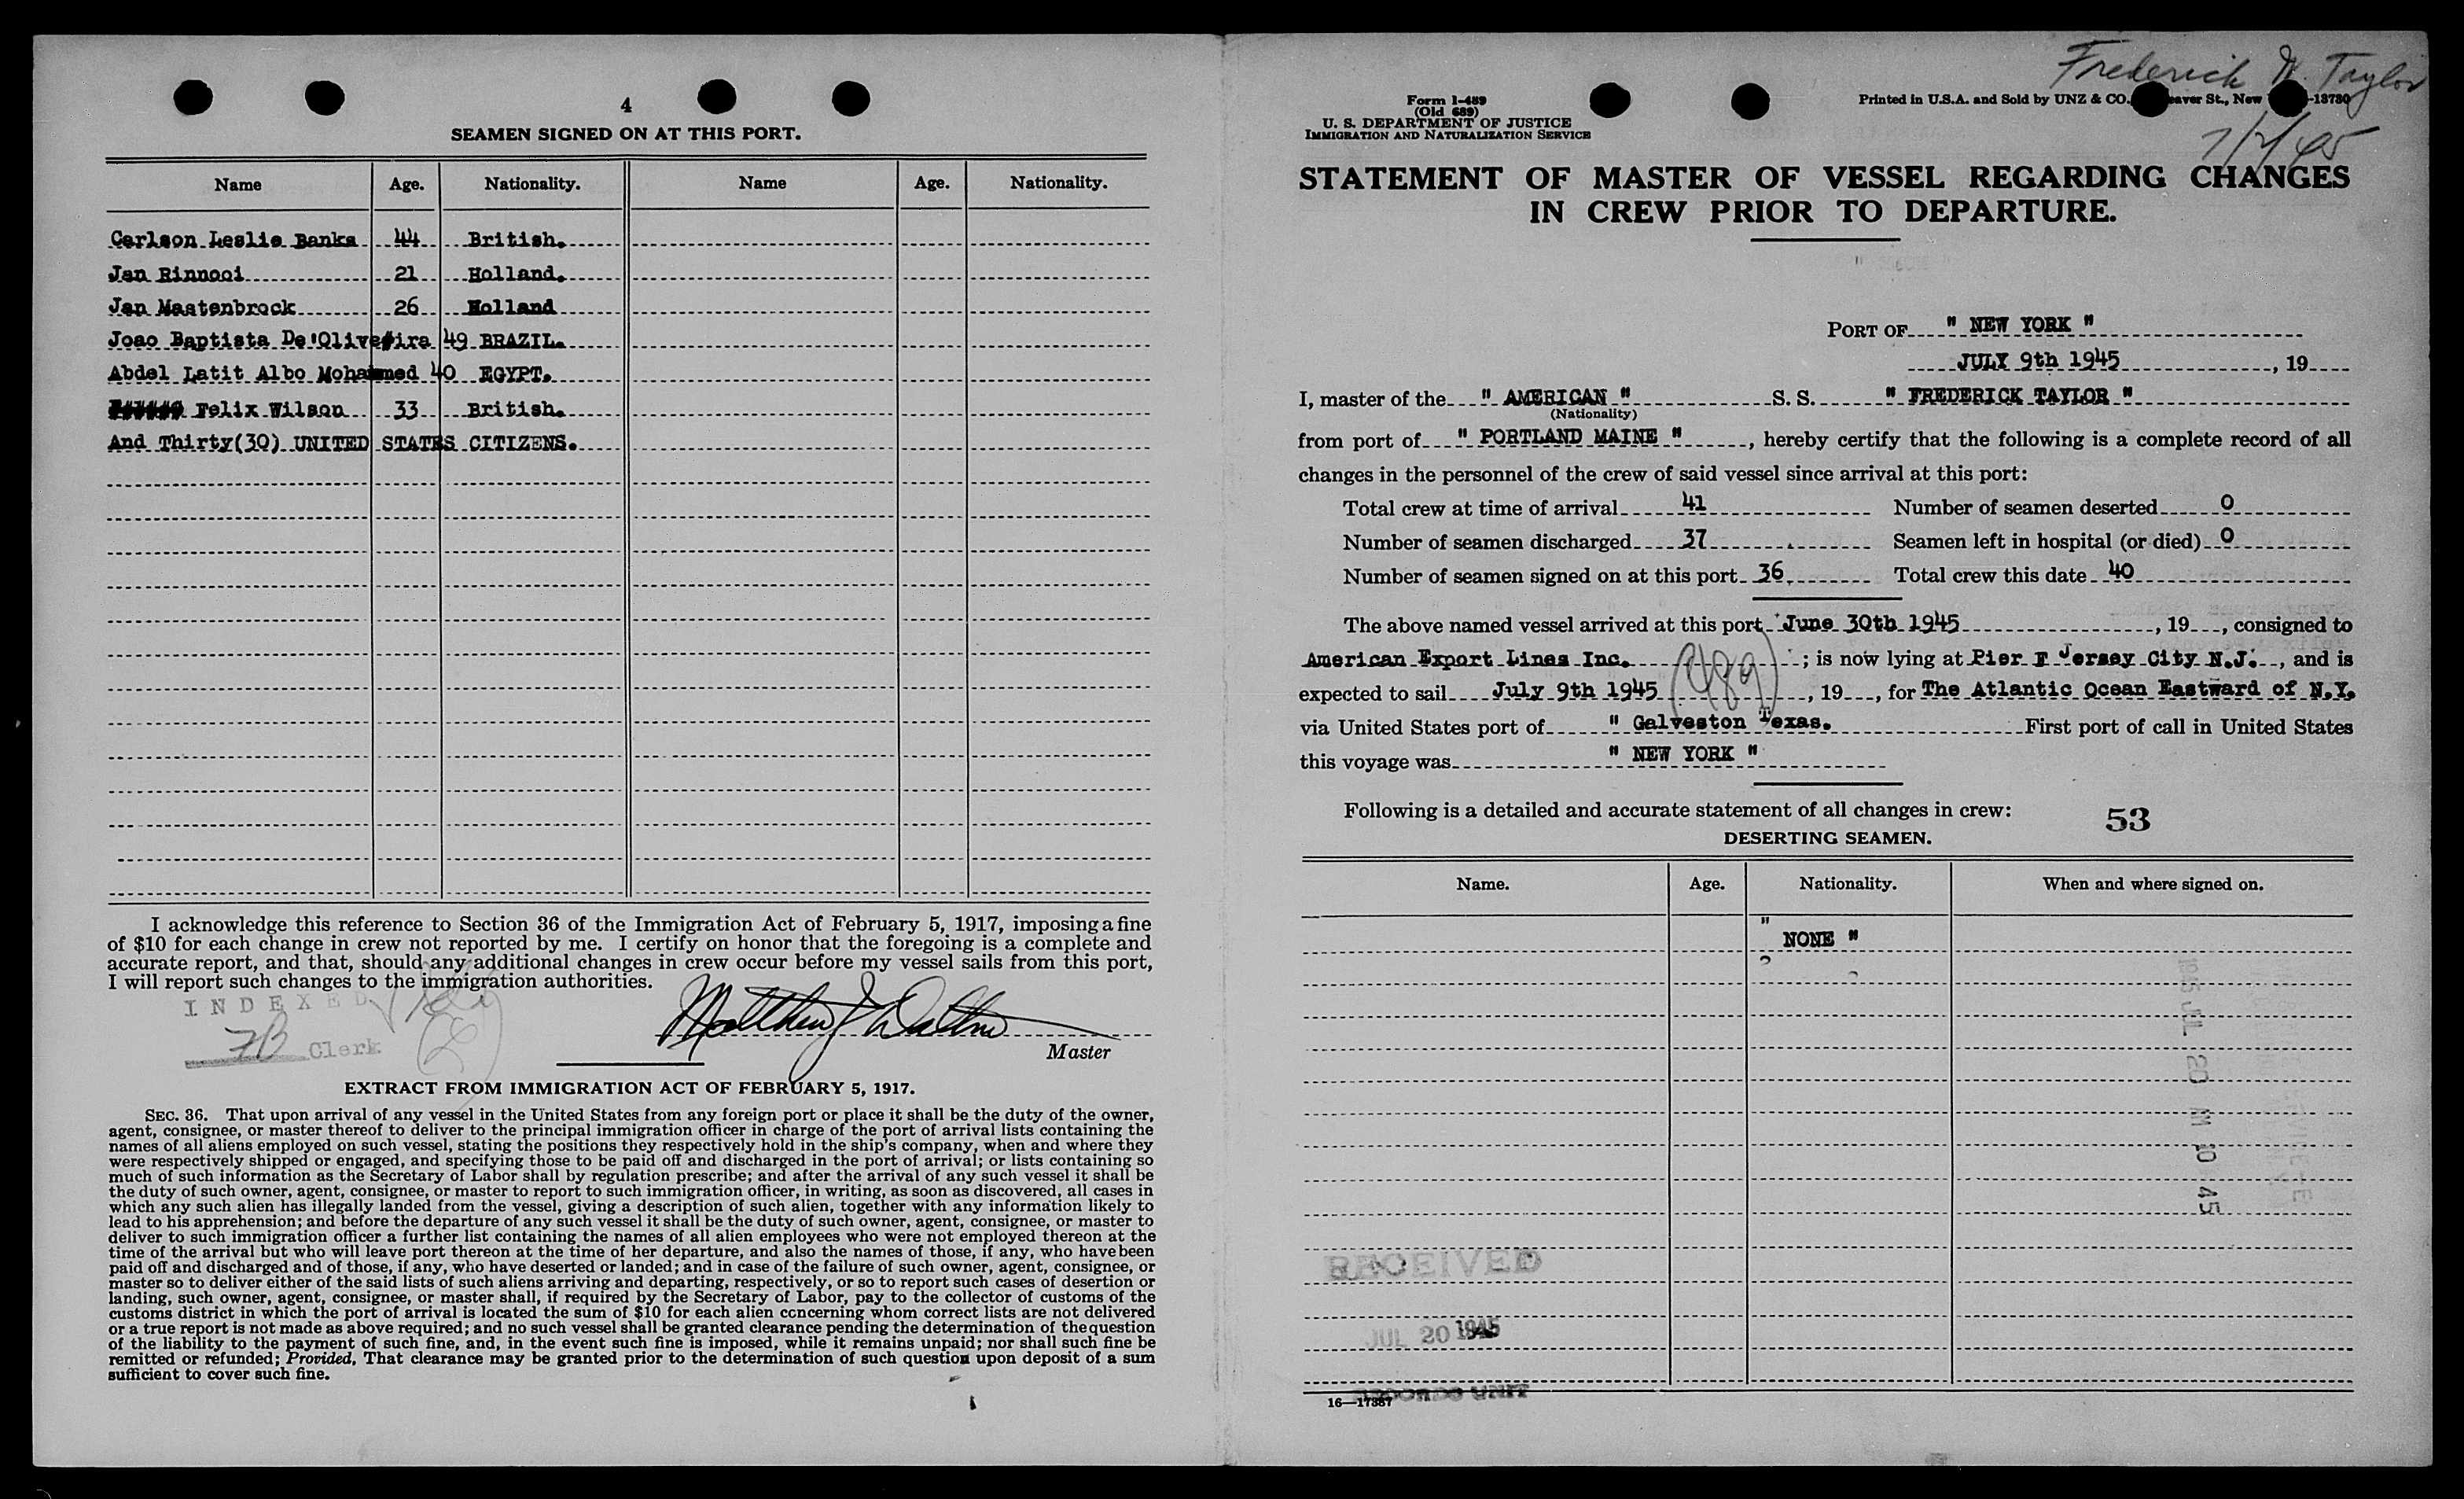 4
SEAMEN SIGNED ON AT THIS PORT.
Name Age. Nationality. Name Age. Nationality.
Carlson Leslie Banks 44 British.
Jan Rinnooi 21 Holland.
Jan Mastenbrock 26 Holland
Joao Baptista De'Oliveira 49 BRAZIL.
Abdel Latit Albo Mohammed 40 EGYPT.
Felix Wilson 33 British.
And Thirty(30) UNITED STATES CITIZENS.
I acknowledge this reference to Section 36 of the Immigration Act of February 5, 1917, imposing a fine
of $10 for each change in crew not reported by me. I certify on honor that the foregoing is a complete and
accurate report, and that, should any additional changes in crew occur before my vessel sails from this port,
I will report such changes to the immigration authorities.
INDEXED
Clerk
Matthew J
Master
EXTRACT FROM IMMIGRATION ACT OF FEBRUARY 5, 1917.
SEC. 36. That upon arrival of any vessel in the United States from any foreign port or place it shall be the duty of the owner,
agent, consignee, or master thereof to deliver to the principal immigration officer in charge of the port of arrival lists containing the
names of all aliens employed on such vessel, stating the positions they respectively hold in the ship's company, when and where they
were respectively shipped or engaged, and specifying those to be paid off and discharged in the port of arrival; or lists containing so
much of such information as the Secretary of Labor shall by regulation prescribe; and after the arrival of any such vessel it shall be
the duty of such owner, agent, consignee, or master to report to such immigration officer, in writing, as soon as discovered, all cases in
which any such alien has illegally landed from the vessel, giving a description of such alien, together with any information likely to
lead to his apprehension; and before the departure of any such vessel it shall be the duty of such owner, agent, consignee, or master to
deliver to such immigration officer a further list containing the names of all alien employees who were not employed thereon at the
time of the arrival but who will leave port thereon at the time of her departure, and also the names of those, if any, who have been
paid off and discharged and of those, if any, who have deserted or landed; and in case of the failure of such owner, agent, consignee, or
master so to deliver either of the said lists of such aliens arriving and departing, respectively, or so to report such cases of desertion or
landing, such owner, agent, consignee, or master shall, if required by the Secretary of Labor, pay to the collector of customs of the
customs district in which the port of arrival is located the sum of $10 for each alien concerning whom correct lists are not delivered
or a true report is not made as above required; and no such vessel shall be granted clearance pending the determination of the question
of the liability to the payment of such fine, and, in the event such fine is imposed, while it remains unpaid; nor shall such fine be
remitted or refunded; Provided, That clearance may be granted prior to the determination of such question upon deposit of a sum
sufficient to cover such fine.
Frederick W. Taylor
7/2/45
Form I-489
(Old 689)
U. S. DEPARTMENT OF JUSTICE
IMMIGRATION AND NATURALIZATION SERVICE
Printed in U.S.A. and Sold by UNZ & CO. eaver St., New -13730
STATEMENT OF MASTER OF VESSEL REGARDING CHANGES
IN CREW PRIOR TO DEPARTURE.
PORT OF " NEW YORK "
JULY 9th 1945, 19
I, master of the " AMERICAN " S. S. " FREDERICK TAYLOR "
(Nationality)
from port of " PORTLAND MAINE ", hereby certify that the following is a complete record of all
changes in the personnel of the crew of said vessel since arrival at this port:
Total crew at time of arrival 41 Number of seamen deserted 0
Number of seamen discharged 37 Seamen left in hospital (or died) 0
Number of seamen signed on at this port 36 Total crew this date 40
The above named vessel arrived at this port June 30th 1945, 19, consigned to
American Export Lines Inc. ; is now lying at Pier F Jersey City N.J. , and is
expected to sail July 9th 1945, 19, for The Atlantic Ocean Eastward of N.Y.
via United States port of " Galveston Texas. First port of call in United States
this voyage was " NEW YORK "
(489)
Following is a detailed and accurate statement of all changes in crew:
53
DESERTING SEAMEN.
Name. Age. Nationality. When and where signed on.
" NONE "
1945 JUL 20 M 10 45
RECEIVED
JUL 20 1945
RECORDS UNIT
16—17387